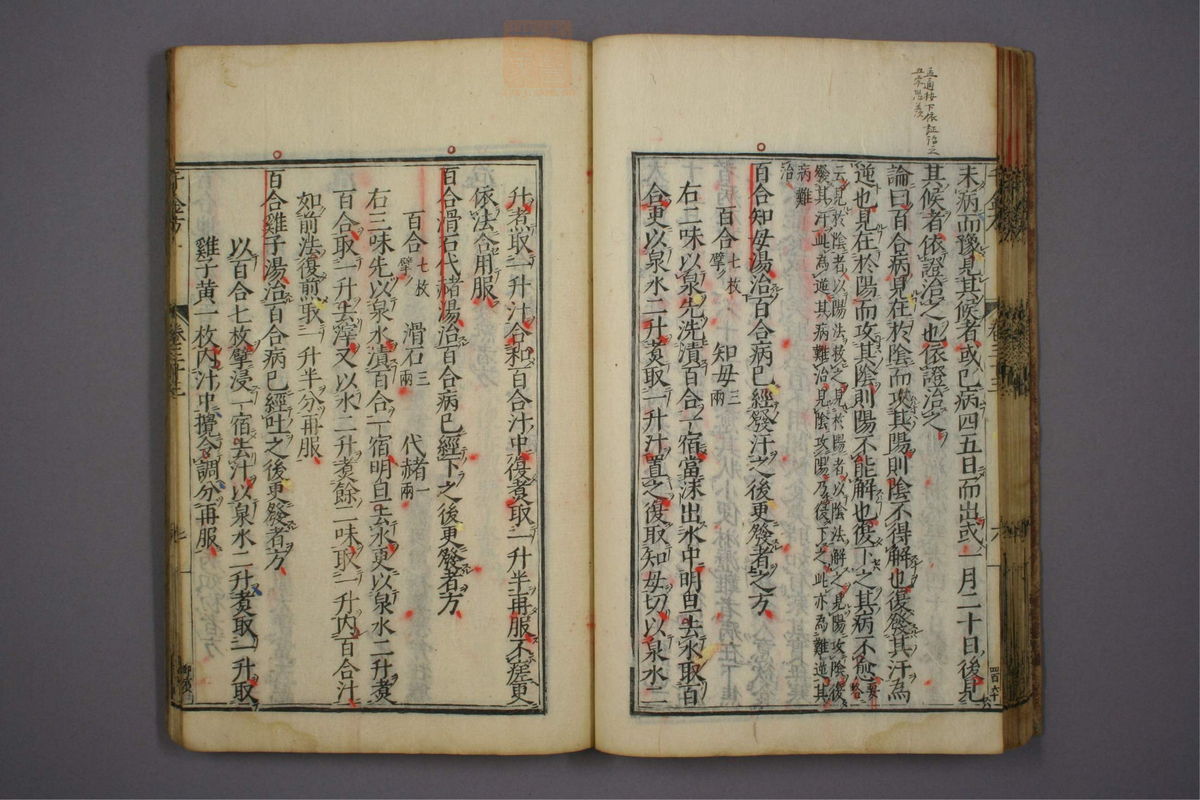 未病而豫見其候者或已病四五日而出或一月二十日後見
其候者依證治之也依證治之
論曰百合病見在於陰而攻其陽則陰不得解也復發其汗為
逆也見在於陽而攻其陰則陽不能解也復下之其病不愈
云見於陰者以陽法救之見於陽者以陰法解之見陽攻陰復
發其汗此為逆其病難治見陰攻陽乃復下之此亦為難逆其
病難
治
百合知母湯治百合病已經發汗之後更發者之方
百合七枚擘 知母三兩
右二味以泉先洗漬百合一宿當沫出水中明旦去水取百
合更以泉水二升煮取一升汁置之復取知母切以泉水二
升煮取一升汁合和百合汁中復煮取一升半再服不瘥更
依法合用服
百合滑石代赭湯治百合病已經下之後更發者方
百合七枚擘 滑石三兩 代赭一兩
右三味先以泉水漬百合一宿明旦去水更以泉水二升煮
百合取一升去滓又以水二升煮餘二味取一升內百合汁
如前法復煎取一升半分再服
百合雞子湯治百合病已經吐之後更發者方
以百合七枚擘浸一宿去汁以泉水二升煮取一升取
雞子黃一枚內汁中攪令調分再服